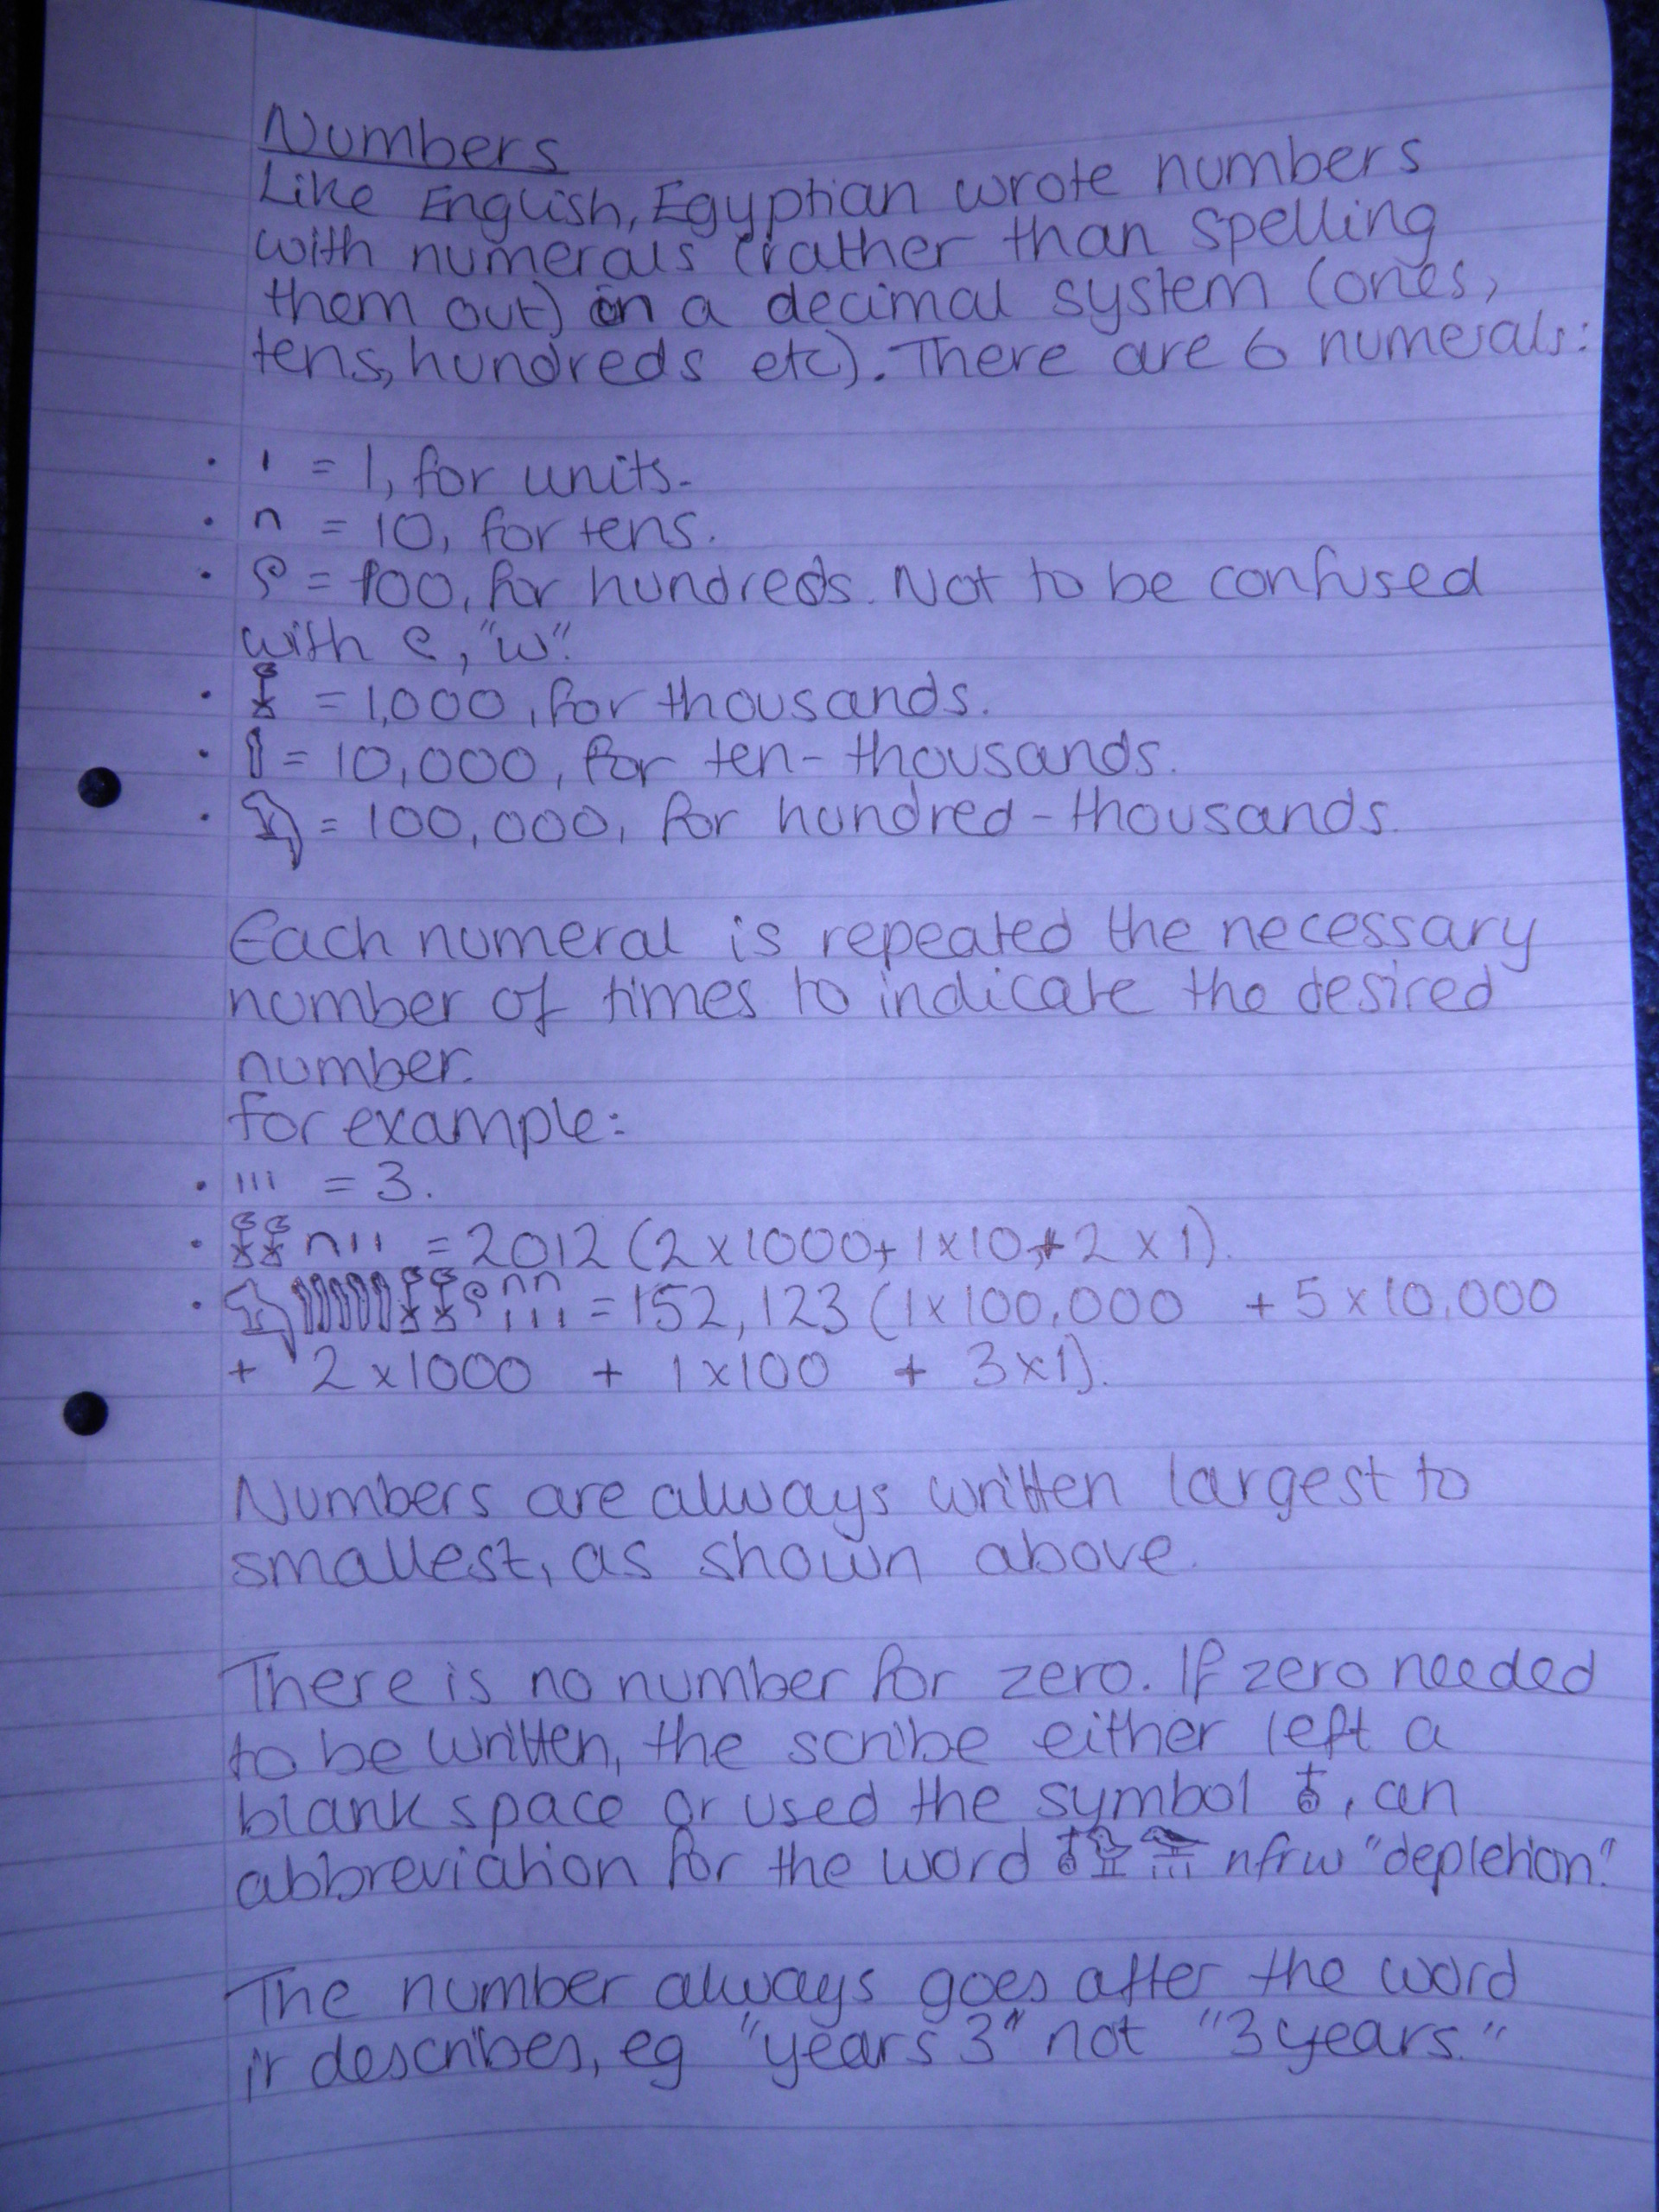 Numbers
Like English, Egyptian wrote numbers
with numerals (rather than spelling
them out) in a decimal system (ones,
tens, hundreds etc). There are 6 numerals:
• 𓏤 = 1, for units.
• 𓎆 = 10, for tens.
• 𓍢 = 100, for hundreds. Not to be confused
with 𓏲, "w".
• 𓆼 = 1,000, for thousands.
• 𓂭 = 10,000, for ten-thousands.
• 𓆐 = 100,000, for hundred-thousands.
Each numeral is repeated the necessary
number of times to indicate the desired
number.
for example:
• 𓏤𓏤𓏤 = 3.
• 𓆼𓆼𓎆𓏤𓏤 = 2012 (2x1000+1x10+2x1).
• 𓆐𓂭𓂭𓂭𓂭𓂭𓆼𓆼𓍢𓎆𓎆𓏤𓏤𓏤 = 152,123 (1x100,000 + 5x10,000
+ 2x1000 + 1x100 + 3x1).
Numbers are always written largest to
smallest, as shown above.
There is no number for zero. If zero needed
to be written, the scribe either left a
blank space or used the symbol 𓄤, an
abbreviation for the word 𓄤𓅱𓅪𓏥 nfrw "depletion."
The number always goes after the word
it describes, eg "years 3" not "3 years."